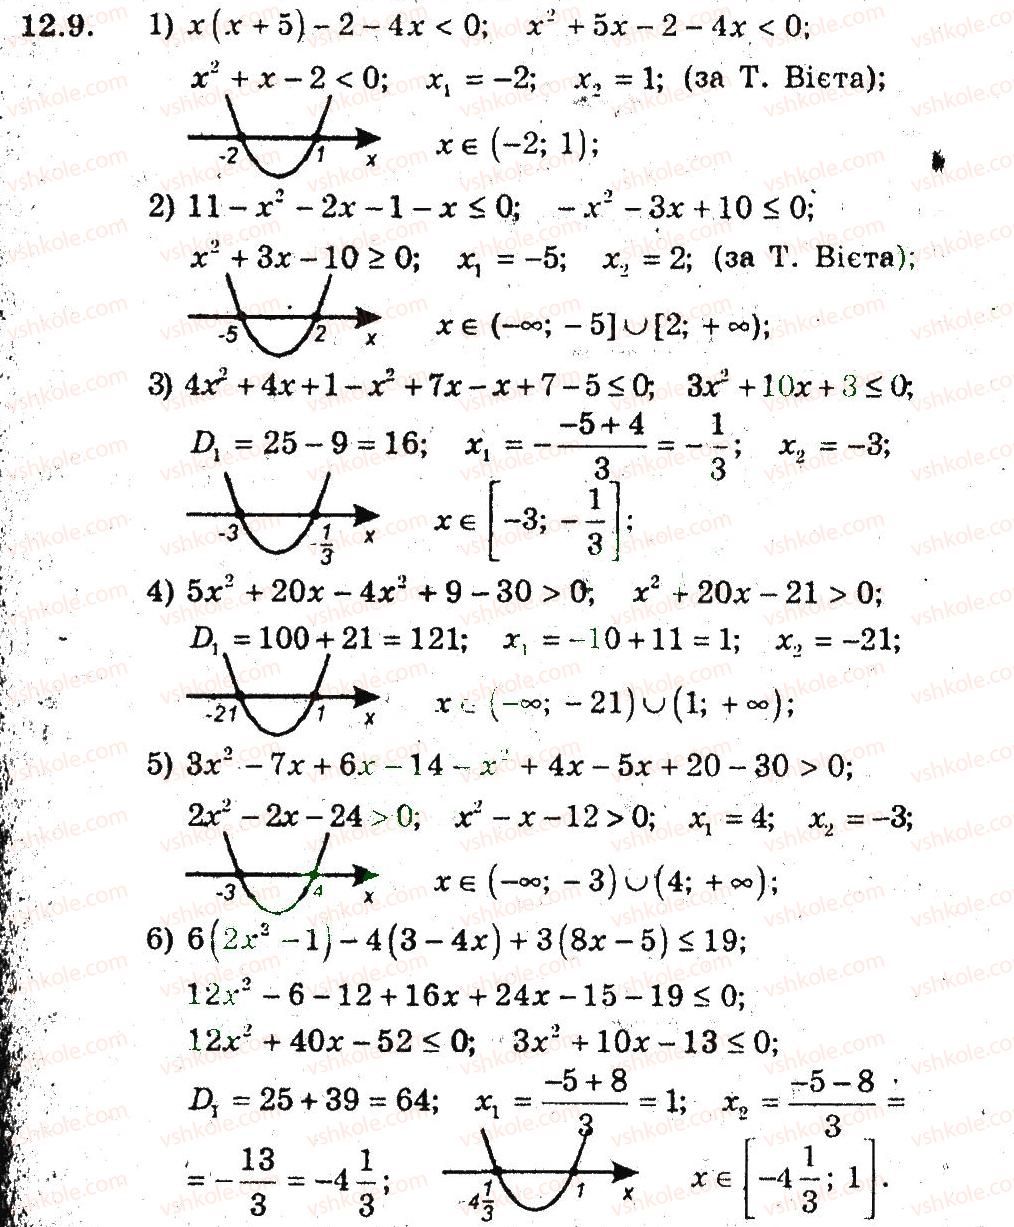 12.9. 1) x(x + 5) − 2 − 4x < 0; x² + 5x − 2 − 4x < 0;
x² + x − 2 < 0; x₁ = −2; x₂ = 1; (за Т. Вієта);
-2 1 x x ∈ (−2; 1);
2) 11 − x² − 2x − 1 − x ≤ 0; − x² − 3x + 10 ≤ 0;
x² + 3x − 10 ≥ 0; x₁ = −5; x₂ = 2; (за Т. Вієта);
-5 2 x x ∈ (−∞; − 5] ∪ [2; + ∞);
3) 4x² + 4x + 1 − x² + 7x − x + 7 − 5 ≤ 0; 3x² + 10x + 3 ≤ 0;
D₁ = 25 − 9 = 16; x₁ = − (−5 + 4)/3 = − 1/3; x₂ = −3;
-3 -1/3 x x ∈ [−3; − 1/3];
4) 5x² + 20x − 4x² + 9 − 30 > 0; x² + 20x − 21 > 0;
D₁ = 100 + 21 = 121; x₁ = −10 + 11 = 1; x₂ = −21;
-21 1 x x ∈ (−∞; − 21) ∪ (1; + ∞);
5) 3x² − 7x + 6x − 14 − x² + 4x − 5x + 20 − 30 > 0;
2x² − 2x − 24 > 0; x² − x − 12 > 0; x₁ = 4; x₂ = −3;
-3 4 x x ∈ (−∞; − 3) ∪ (4; + ∞);
6) 6(2x² − 1) − 4(3 − 4x) + 3(8x − 5) ≤ 19;
12x² − 6 − 12 + 16x + 24x − 15 − 19 ≤ 0;
12x² + 40x − 52 ≤ 0; 3x² + 10x − 13 ≤ 0;
D₁ = 25 + 39 = 64; x₁ = (−5 + 8)/3 = 1; x₂ = (−5 − 8)/3 =
= − 13/3 = −4 1/3; -4 1/3 1 x x ∈ [−4 1/3; 1].